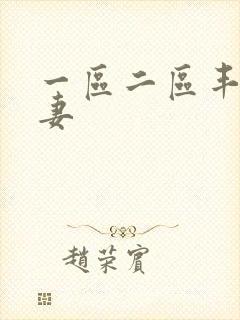 一區二區丰
妻
趙荣賓